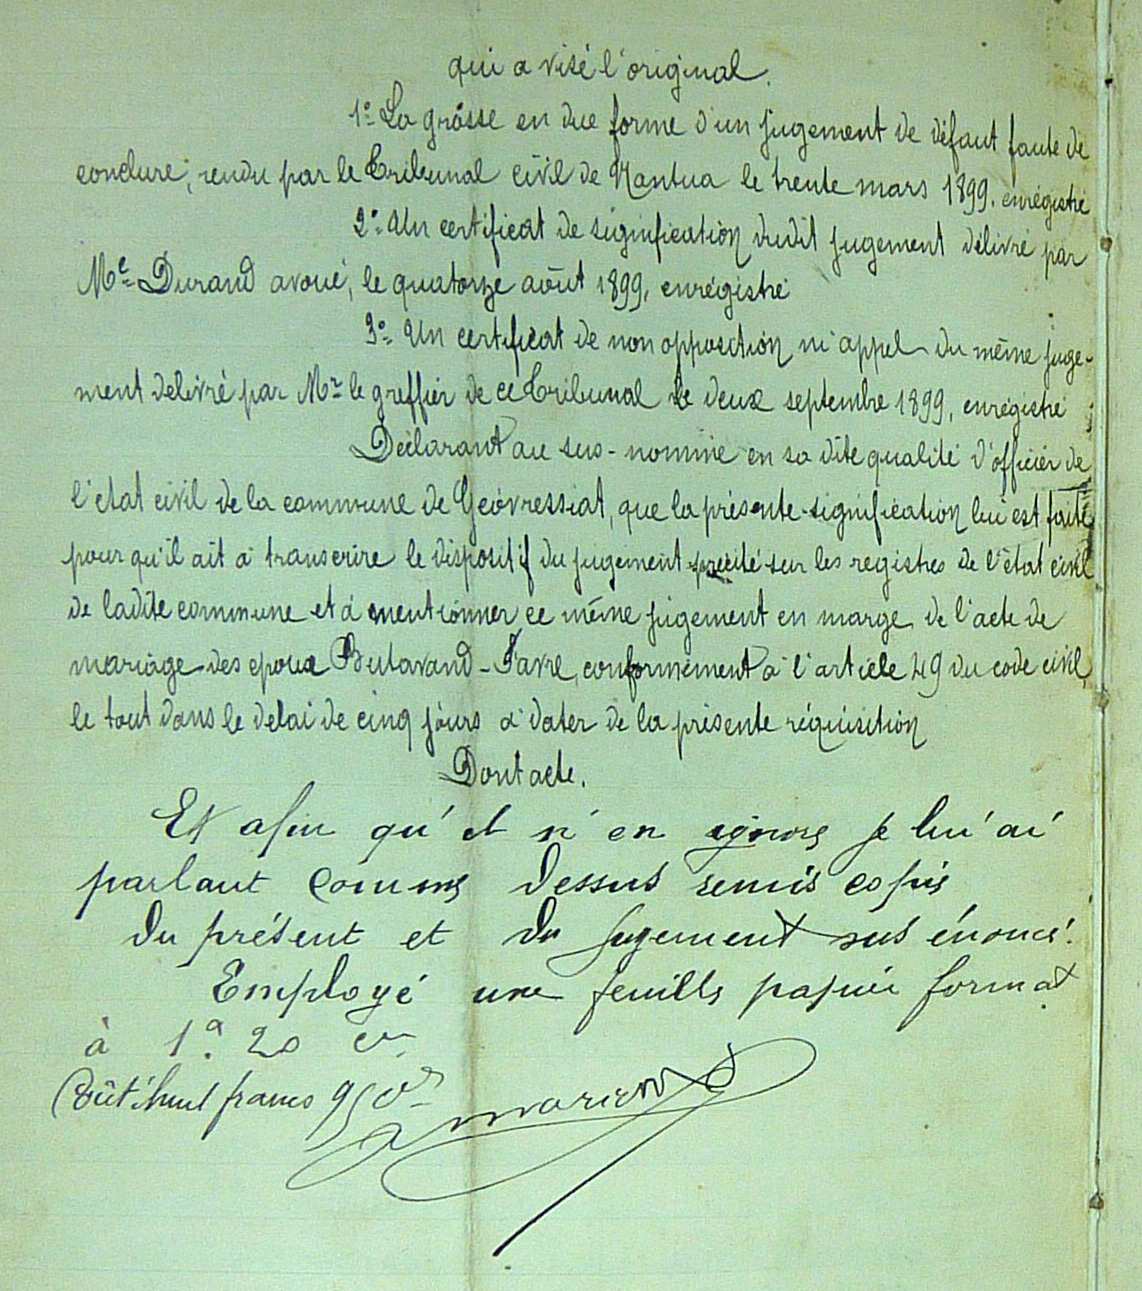 qui a visé l'original.
1º La grosse en due forme d'un jugement de défaut faute de
conclure, rendu par le Tribunal civil de Nantua le trente mars 1899. enrégistré
2º Un certificat de signification dudit jugement délivré par
Me Durand avoué, le quatorze août 1899, enrégistré
3º Un certificat de non opposition ni appel du même juge-
ment delivré par Mr le greffier de ce Tribunal le deux septembre 1899, enrégistré
Déclarant au sus-nommé en sa dite qualité d'officier de
l'état civil de la commune de Géovressiat, que la présente signification lui est faite
pour qu'il ait à transcrire le dispositif du jugement précité sur les registres de l'état civil
de ladite commune et à mentionner ce même jugement en marge de l'acte de
mariage des epoux Butavand-Favre, conformément à l'article 49 du code civil,
le tout dans le delai de cinq jours à dater de la présente réquisition
Dont acte.
Et afin qu'il n'en ignore je lui ai
parlant comme dessus remis copie
du présent et du jugement sus énoncé.
Employé une feuille papier format
à 1. 20 c
Coût: huit francs 95 c